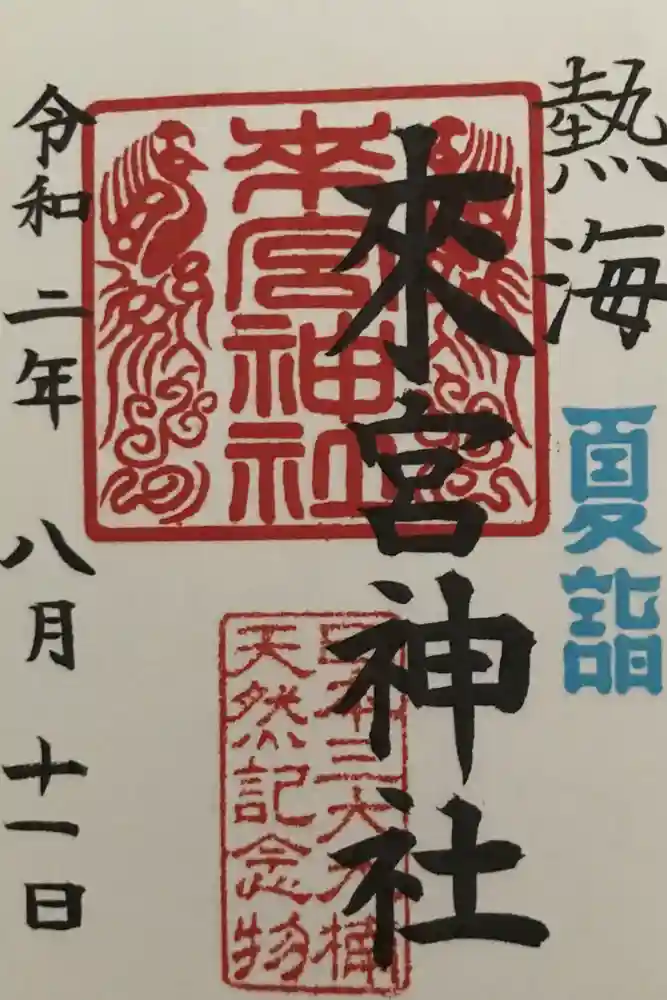 熱海
夏詣
來宮神社
来宮神社
日本三大大楠
天然記念物
令和二年八月十一日